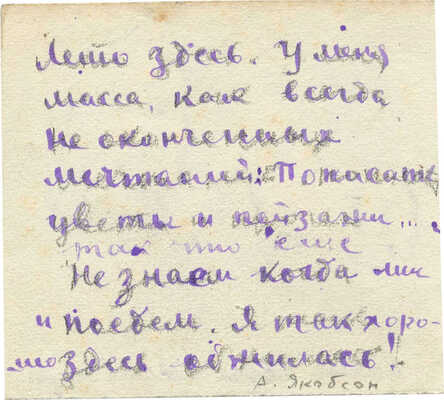 Лето здесь. У меня
масса, как всегда
не оконченных
мечтаний: Пописать
цветы и пейзажи...
так что еще
Не знаем когда мы
и поедем. Я так хоро-
шо здесь обжилась!
А. Якобсон